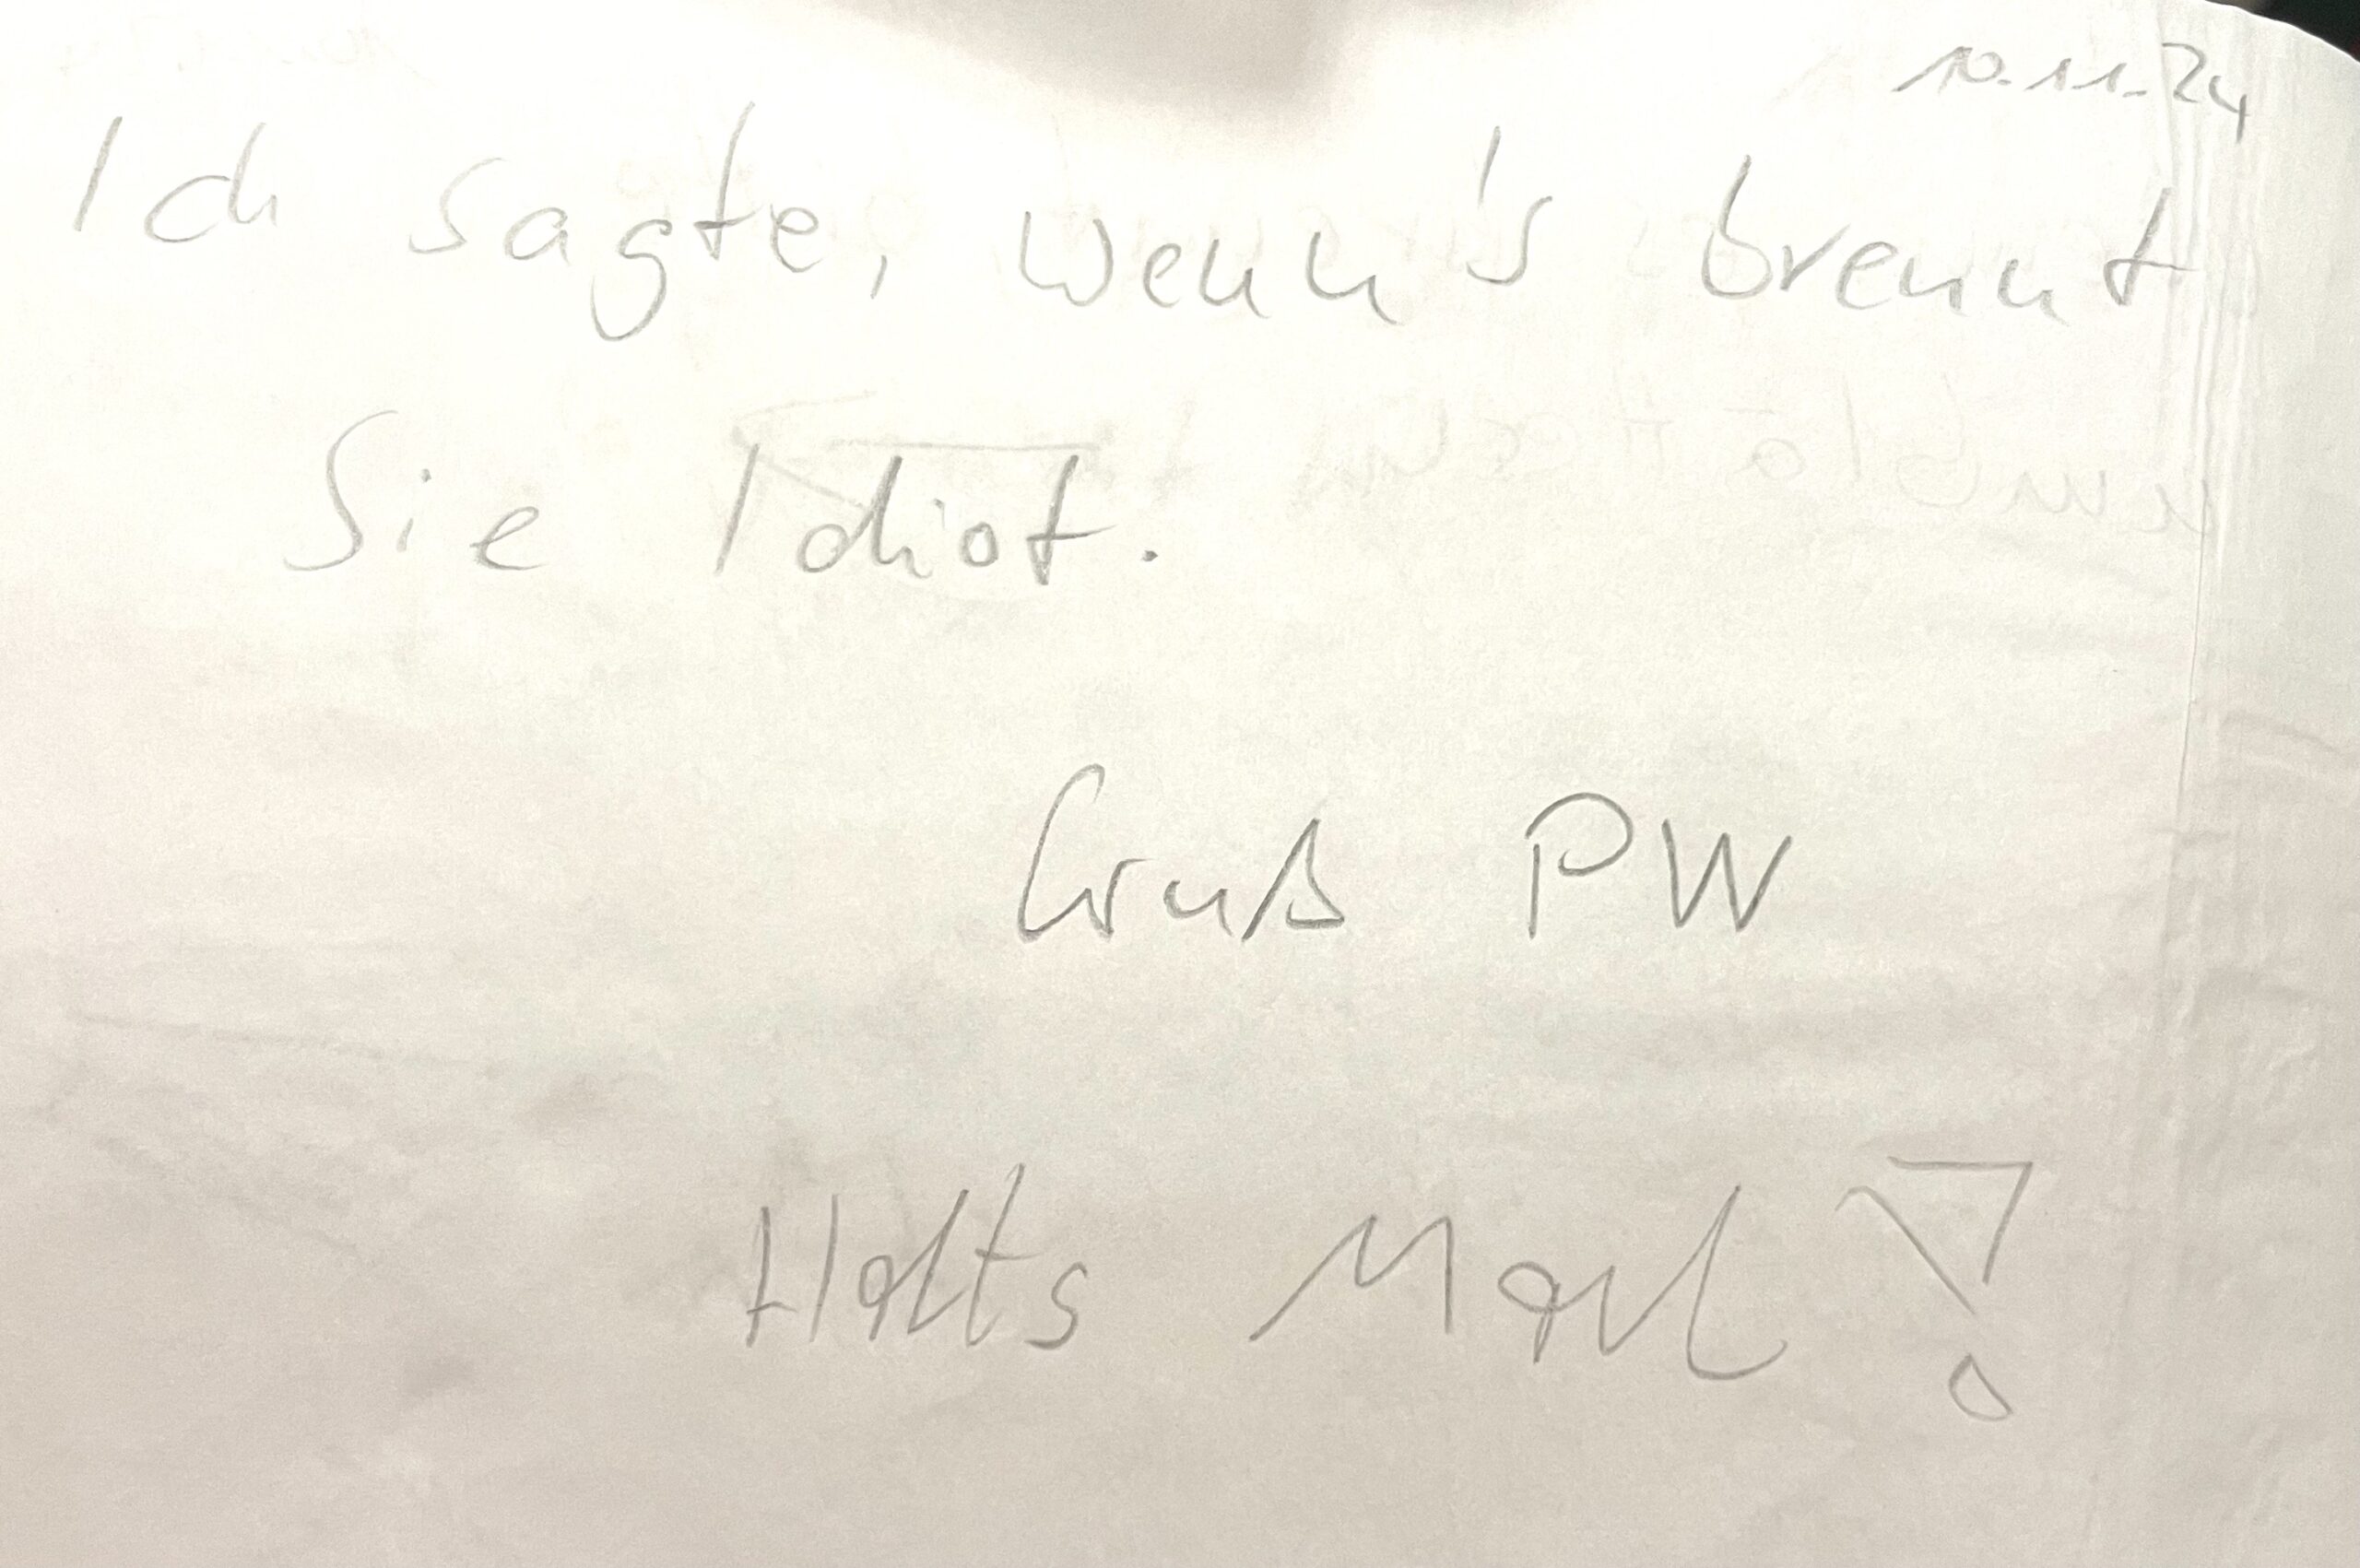 10.11.24
Ich sagte, wenn's brennt
Sie Idiot.
Gruß PW
Halts Maul!